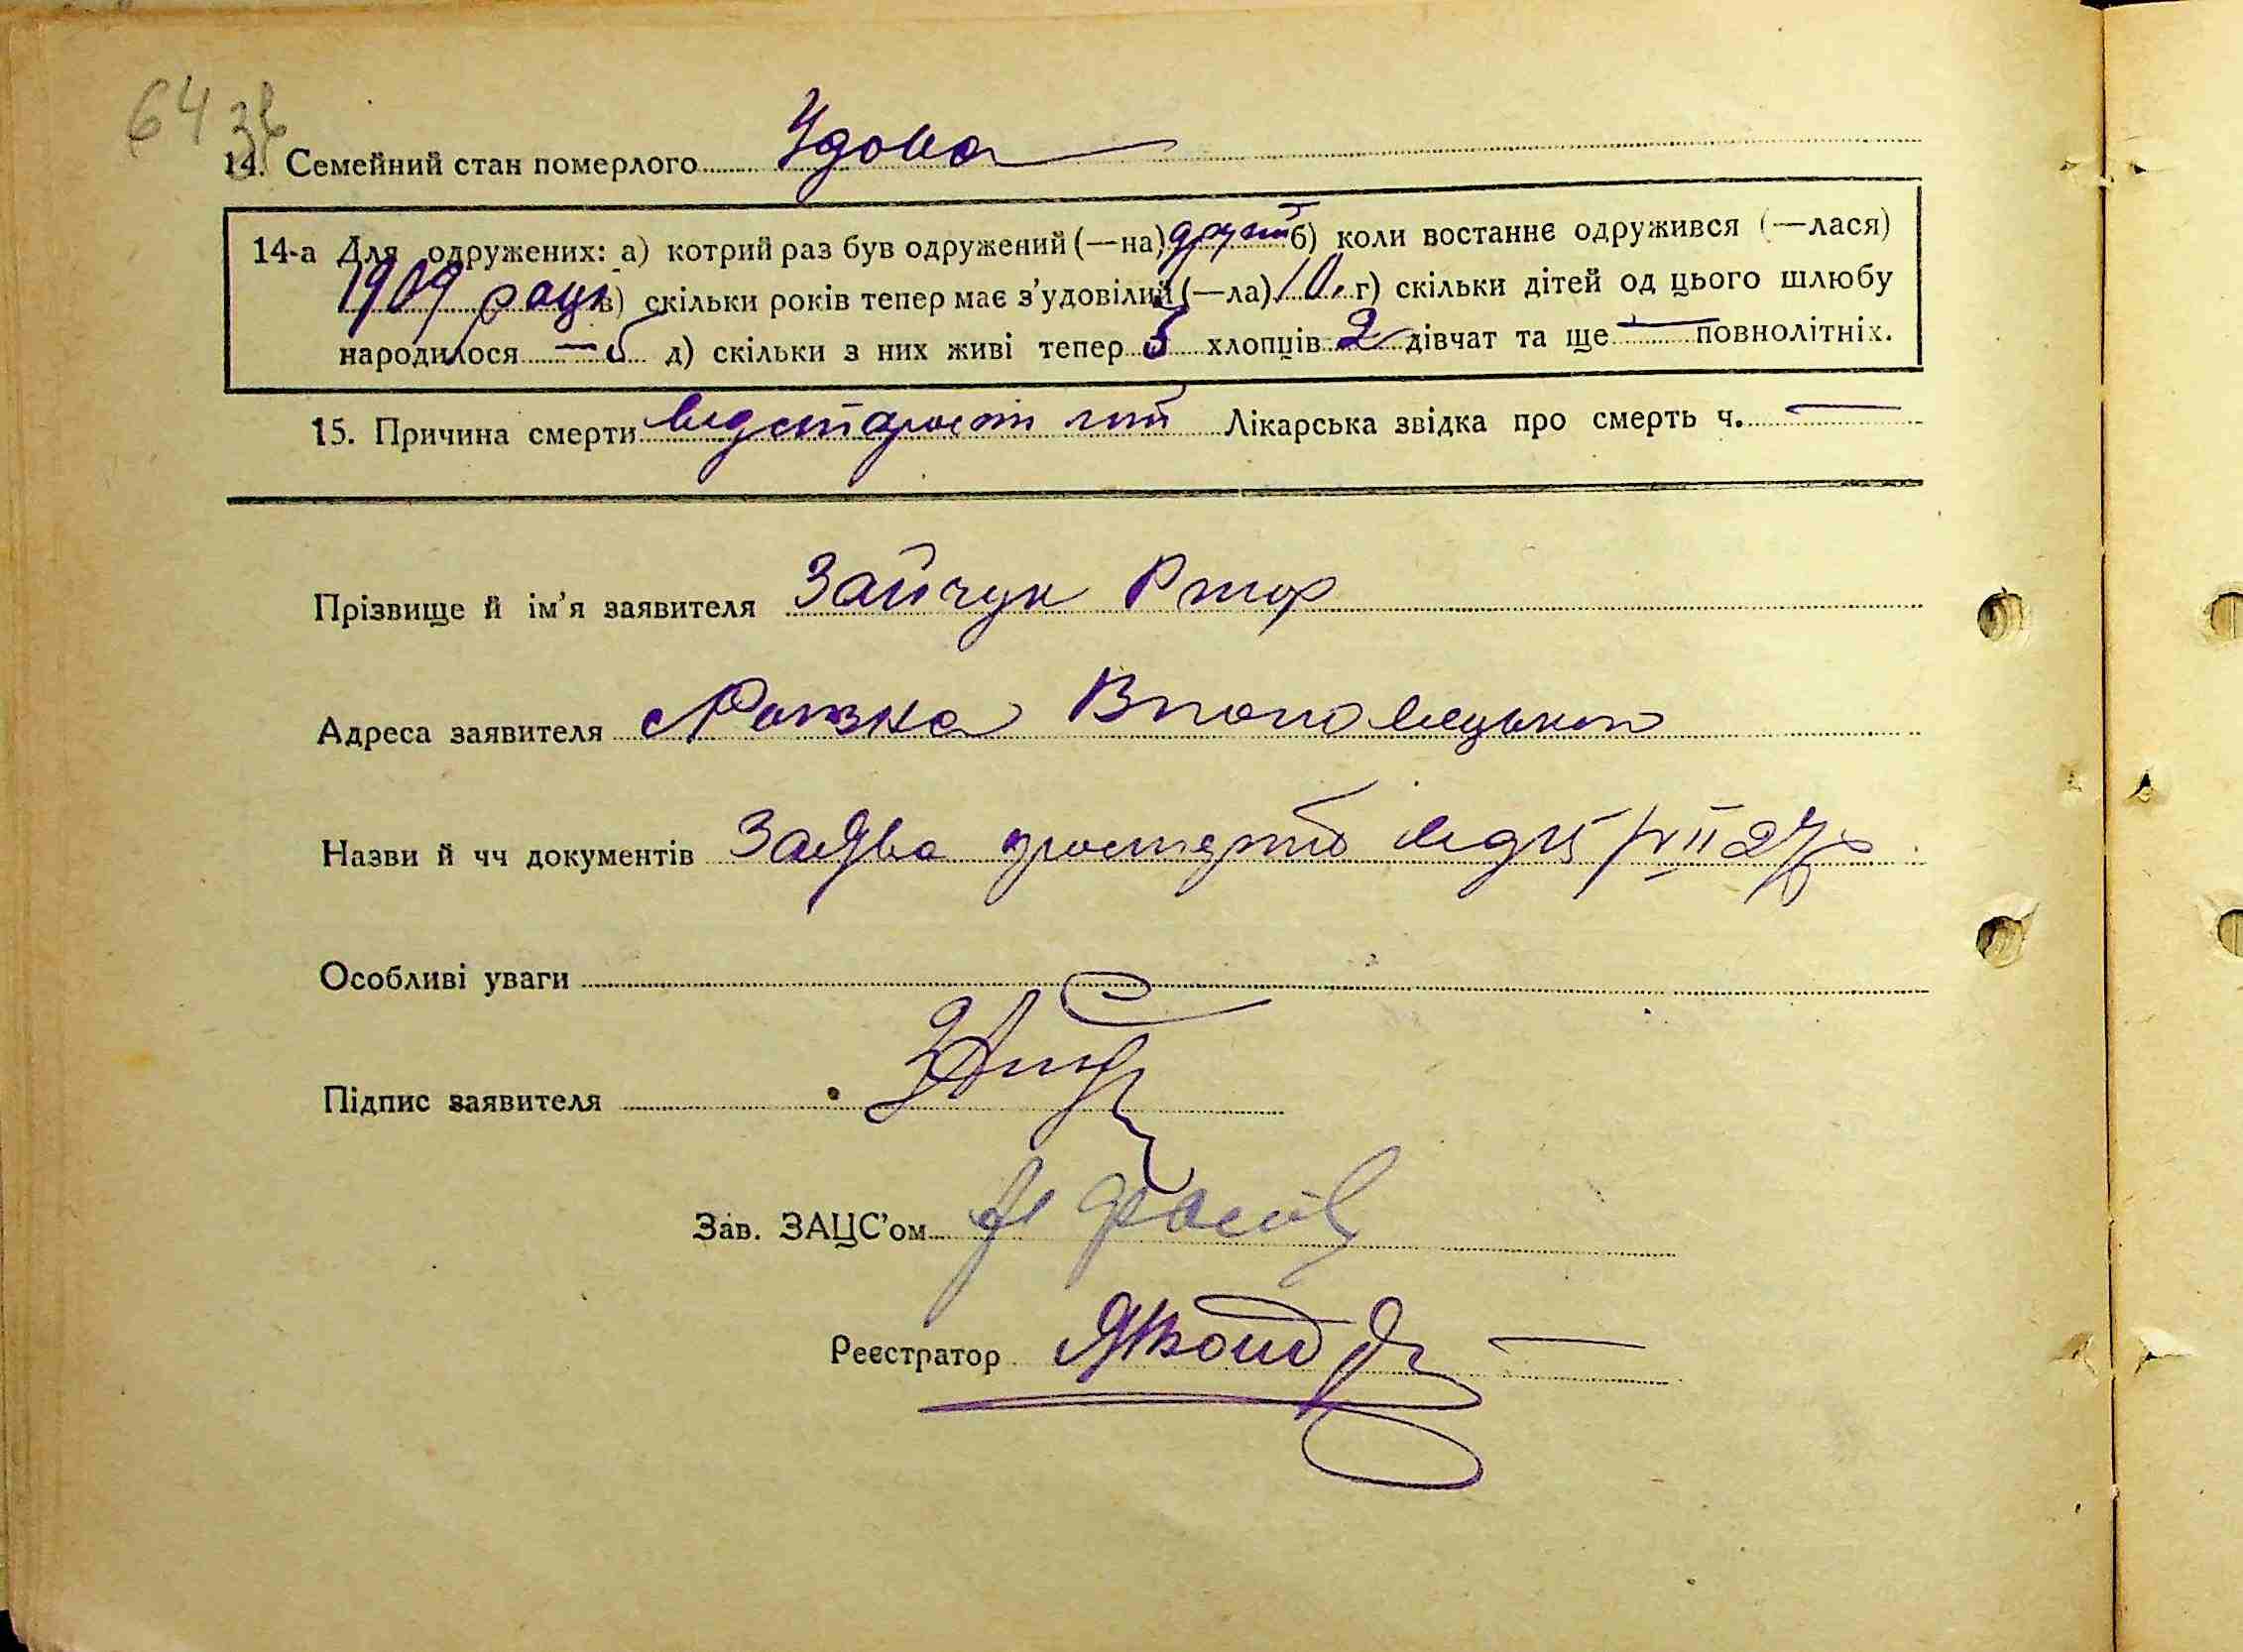 64 зв
14. Семейний стан померлого Удова
14-а Для одружених: а) котрий раз був одружений (—на) другий б) коли востаннє одружився (—лася)
1909 року в) скільки років тепер має з'удовілий (—ла) 10. г) скільки дітей од цього шлюбу
народилося — 5 д) скільки з них живі тепер 3 хлопців 2 дівчат та ще — повнолітніх.
15. Причина смерти від старости літ Лікарська звідка про смерть ч. —
Прізвище й ім'я заявителя Зайчук
Адреса заявителя
Назви й чч документів Заява про смерть від 15/VII 27р
Особливі уваги
Підпис заявителя
Зав. ЗАЦС'ом
Реєстратор